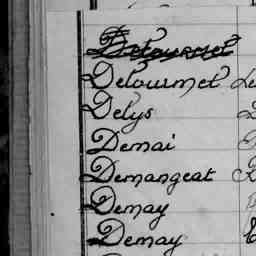 Detourmet
Detourmet
Detys
Demai
Demangeat
Demay
Demay